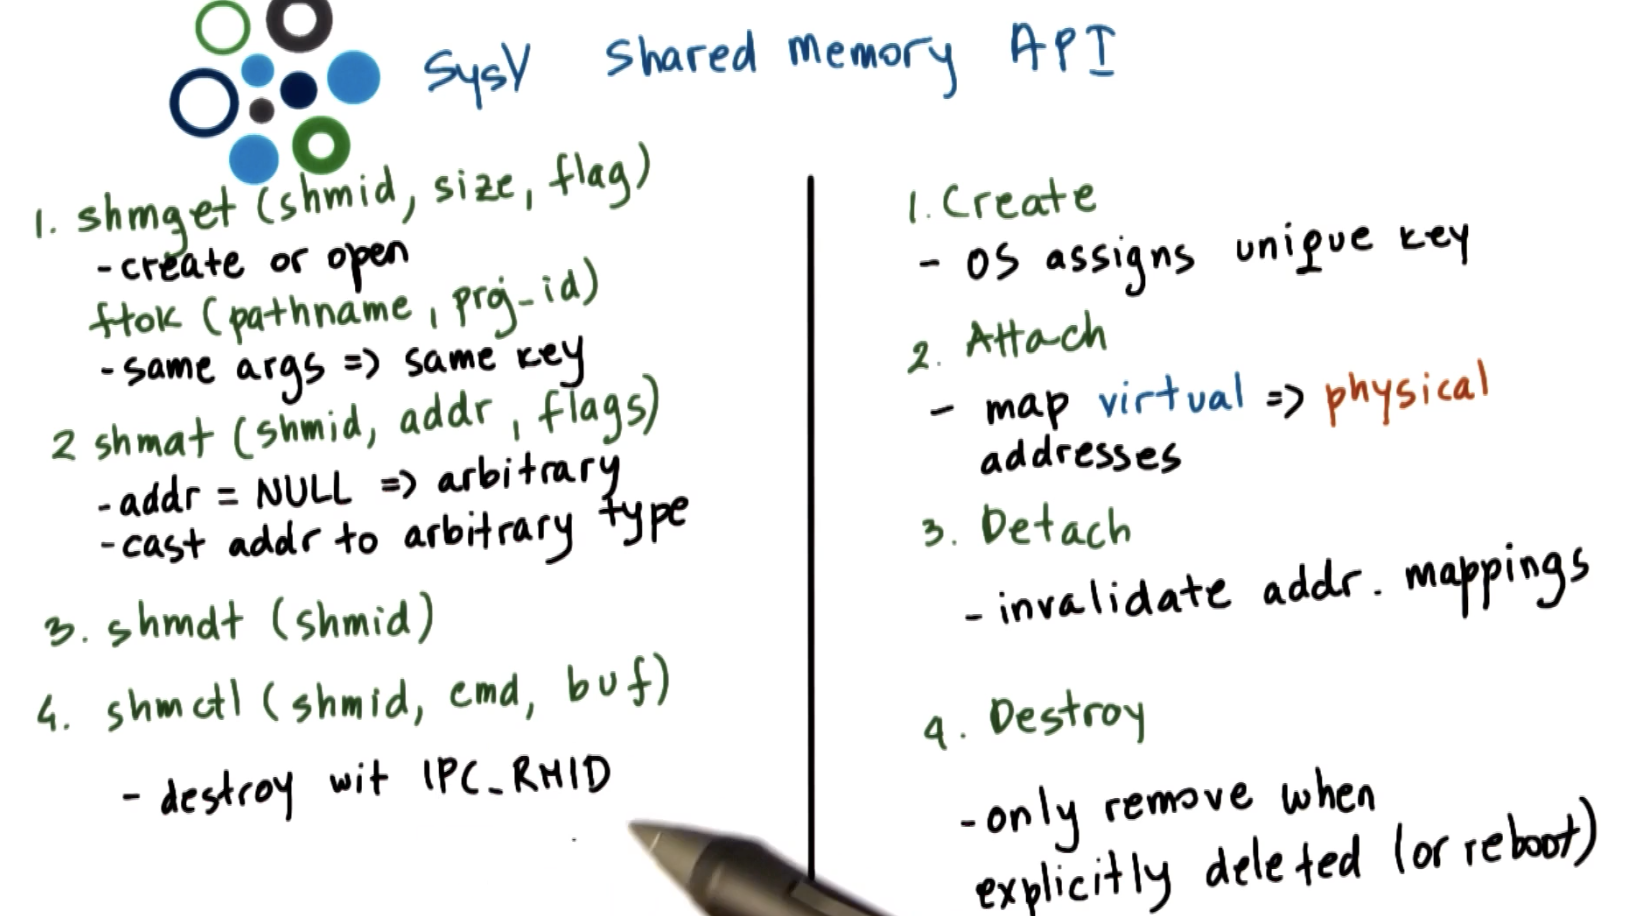 SysV Shared Memory API
1. shmget (shmid, size, flag)
- create or open
ftok (pathname, prj-id)
- same args => same key
2 shmat (shmid, addr, flags)
- addr = NULL => arbitrary
- cast addr to arbitrary type
3. shmdt (shmid)
4. shmctl (shmid, cmd, buf)
- destroy wit IPC_RMID
1. Create
- OS assigns unique key
2. Attach
- map virtual => physical
addresses
3. Detach
- invalidate addr. mappings
4. Destroy
- only remove when
explicitly deleted (or reboot)